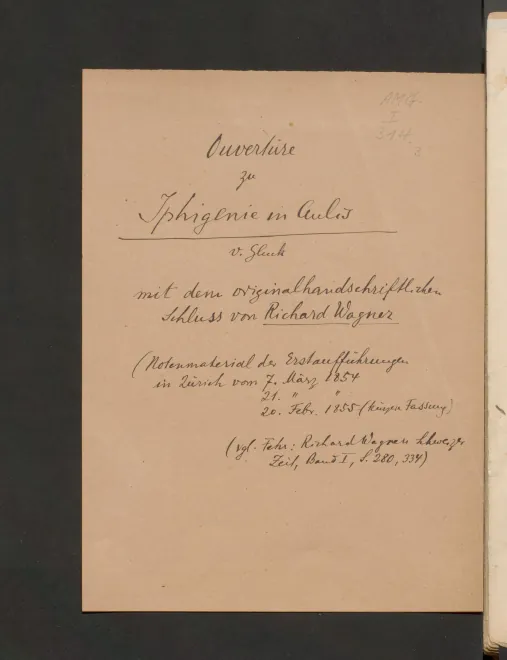 AMG
I
314
Ouvertüre
zu
Iphigenie in Aulis
v. Gluck
mit dem originalhandschriftlichen
Schluss von Richard Wagner
(Notenmaterial der Erstaufführungen
in Zürich vom 7. März 1854
21. " "
20. Febr. 1855 (kürzere Fassung)
(vgl. Fehr: Richard Wagners Schweizer
Zeit, Band I, S. 280, 334)